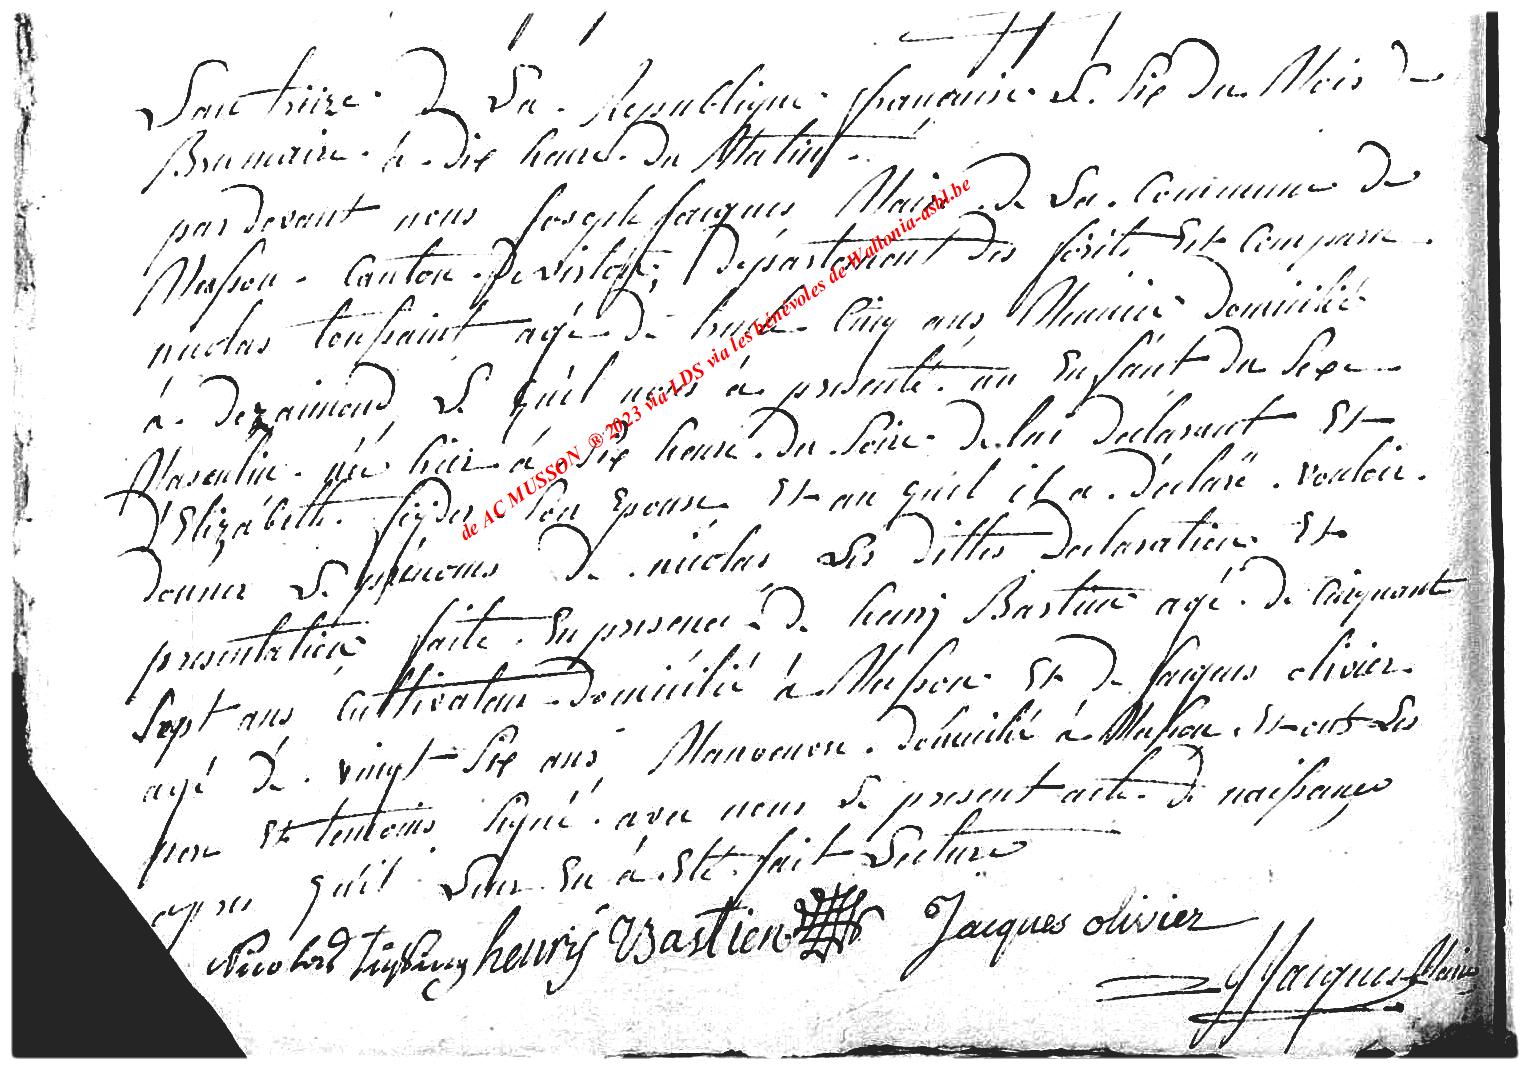 L'an treize de la Republique française le six du Mois de
Brumaire à dix heure du Matin.
pardevant nous Joseph Jacques Maire de la Commune de
Musson Canton de virton, département des forêts Est Comparu
nicolas toussaint agé de trente Cinq ans Meunier Domicilié
à le quel nous à présenté un Enfant du Sexe
Masculin né hier à six heure du soire de lui déclarant Et
d'Elizabeth son Epouse Et au quel il a déclaré vouloir
donner le prénoms de nicolas les dittes declaration Et
presentation faite En presence de henry Bastien agé de Cinquant
Sept ans Cultivateur domicilié à Musson Et de Jacques olivier
agé de vingt Six ans Manoeuvre domicilié à Musson Et ont les
pere Et temoins signé avec nous le present acte de naissance
apres qu'il leur En à Eté fait Lecture
henrij Bastien Jacques olivier
JJacques Maire
de AC MUSSON ® 2023 via LDS via les bénévoles de Wallonia-asbl.be